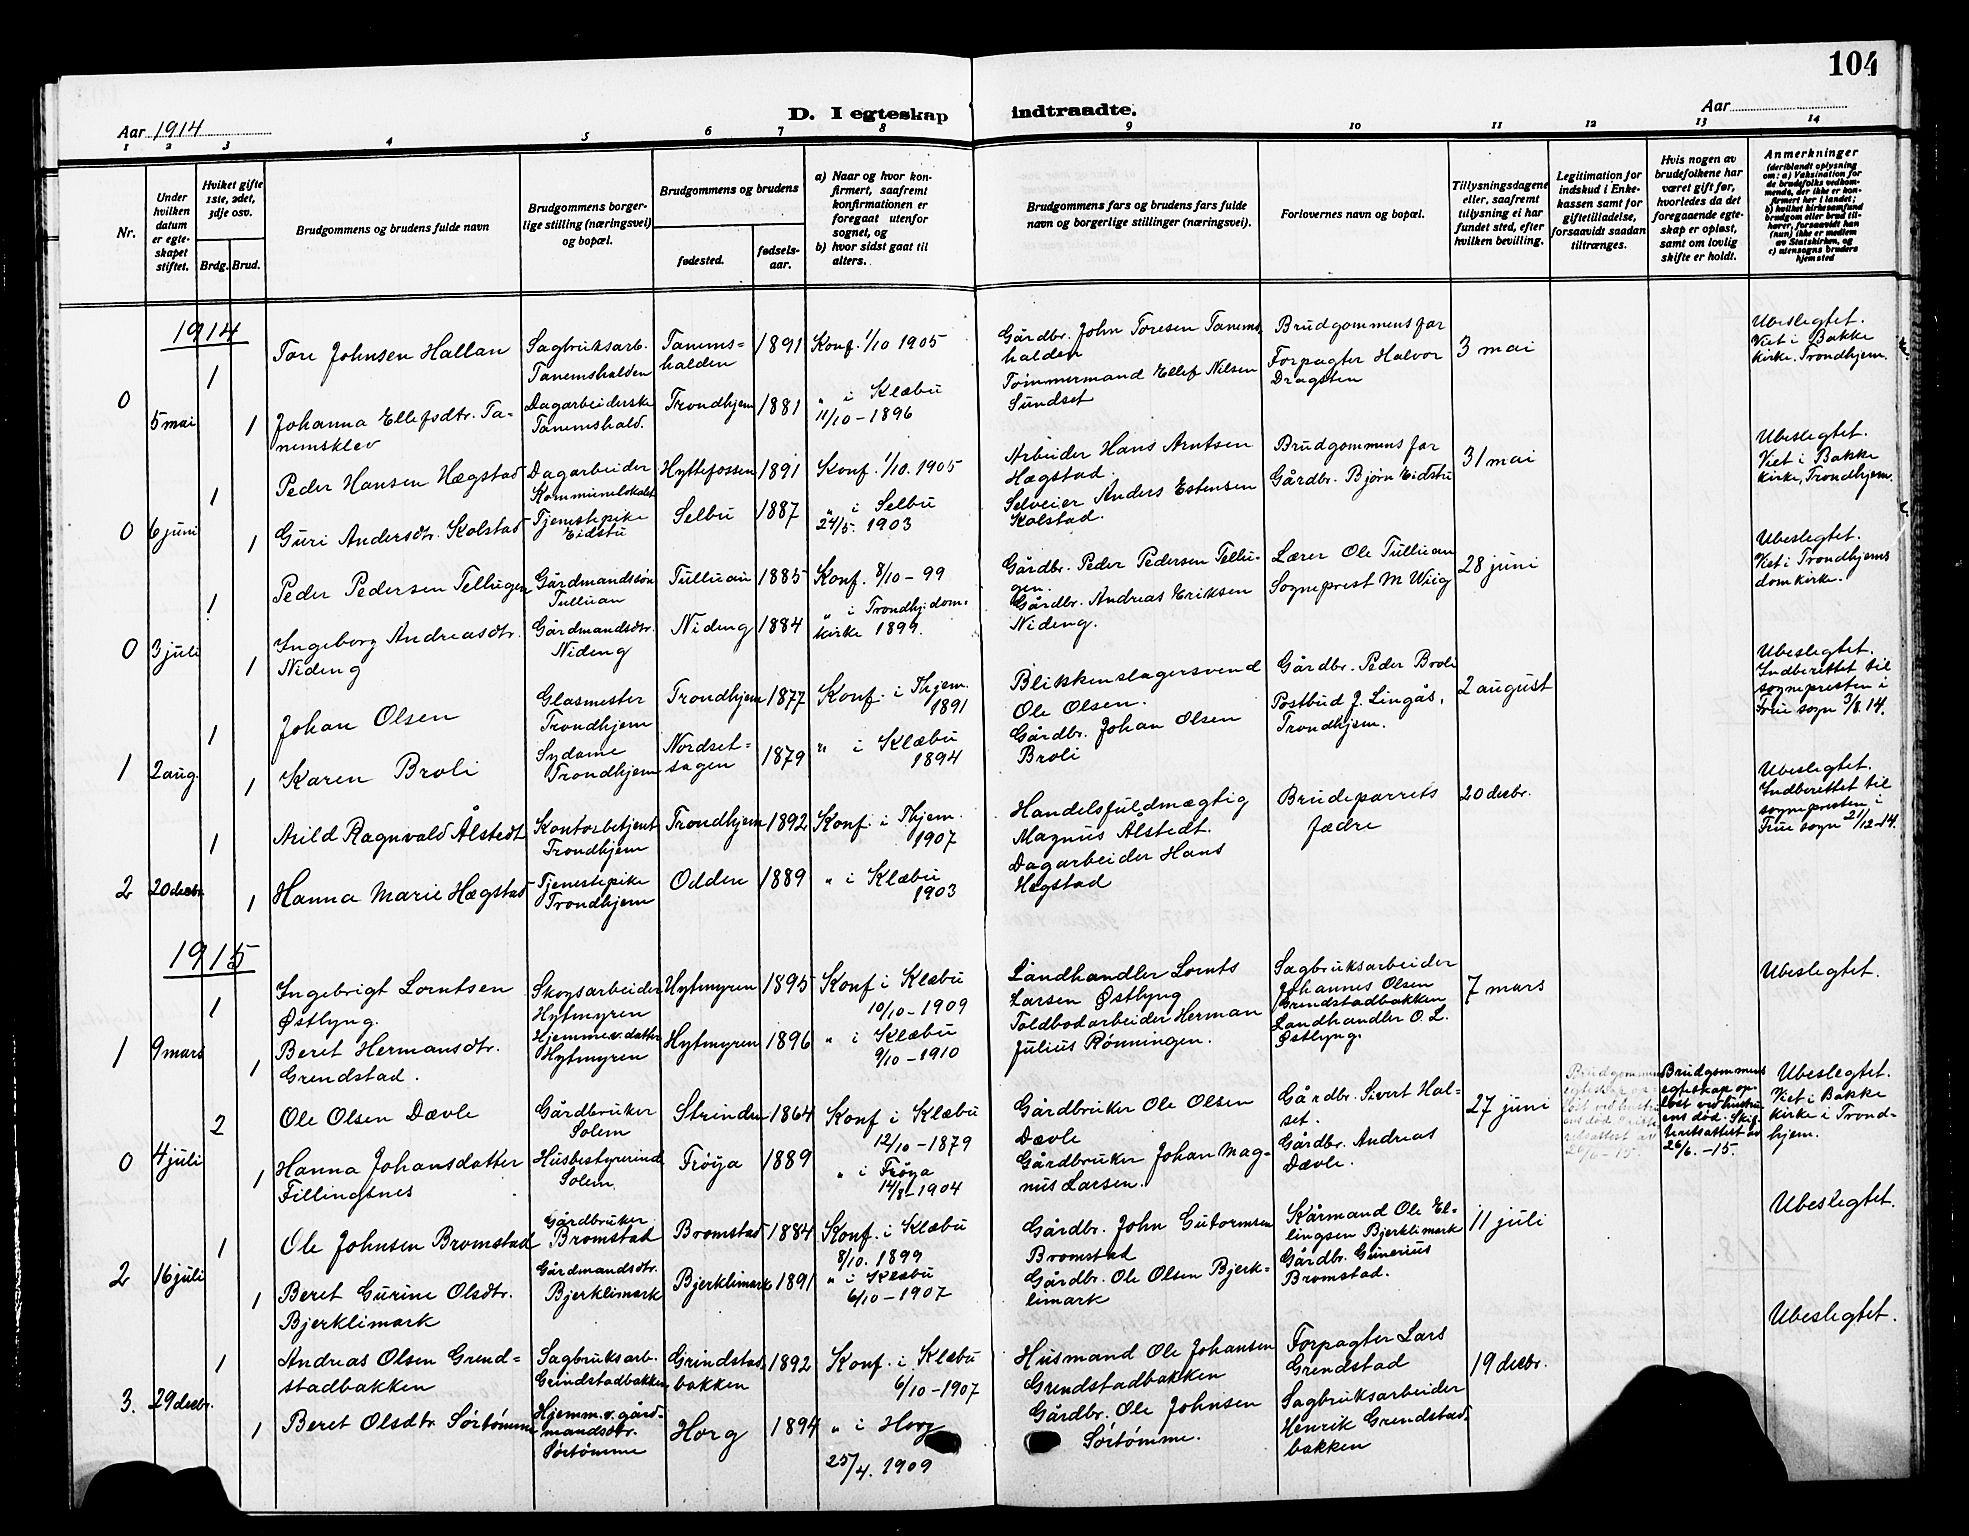 104
D. I egteskap indtraadte.
Aar 1914
Aar
1 2 3 4 5 6 7 8 9 10 11 12 13 14
Nr.
Under hvilken datum er egteskapet stiftet.
Hviket gifte 1ste, 2det, 3dje osv.
Brdg. Brud.
Brudgommens og brudens fulde navn
Brudgommens borgerlige stilling (næringsvei) og bopæl.
Brudgommens og brudens
fødested.
fødselsaar.
a) Naar og hvor konfirmert, saafremt konfirmationen er foregaat utenfor sognet, og
b) hvor sidst gaat til alters.
Brudgommens fars og brudens fars fulde navn og borgerlige stillinger (næringsvei).
Forlovernes navn og bopæl.
Tillysningsdagene eller, saafremt tillysning ei har fundet sted, efter hvilken bevilling.
Legitimation for indskud i Enkekassen samt for giftetilladelse, forsaavidt saadan tiltrænges.
Hvis nogen av brudefolkene har været gift før, hvorledes da det foregaaende egteskap er opløst, samt om lovlig skifte er holdt.
Anmerkninger (deriblandt oplysning om: a) Vaksination for de brudefolks vedkommende, der ikke er konfirmert her i landet; b) hvilket kirkesamfund brudgom eller brud tilhører, forsaavidt han (hun) ikke er medlem av Statskirken, og c) utensogns bruders hjemsted
1914
0
5 mai
1
Tore Johnsen Hallan
Sagbruksarb.
Tanemshalden
Tanems-
halden
1891
Konf. 1/10 1905
Gårdbr. John Toresen Tanems
halden
Brudgommens far
3 mai
Ubeslegtet.
Viet i Bakke
kirke. Trondhjem.
1
Johanna Ellefsdtr. Ta-
nemsklev
Dagarbeiderske
Tanemshald.
Trondhjem
1881
" i Klæbu
11/10 - 1896
Tømmermand Ellef Nilsen
Sundset
Forpagter Halvor
Dragsten
0
6 juni
1
Peder Hansen Hægstad
Dagarbeider
Kommunelokalet
Hyttefossen
1891
Konf. 1/10. 1905
Arbeider Hans Arntsen
Hægstad.
Brudgommens far
31 mai
Ubeslegtet.
Viet i Bakke
kirke, Trondhjem.
1
Guri Andersdtr. Kolstad
Tjenestepike
Eidstu
Selbu
1887
" i Selbu
24/5. 1903
Selveier Anders Estensen
Kolstad.
Gårdbr. Bjørn Eidstu
0
3 juli
1
Peder Pedersen Tellugen
Gårdmandssøn
Tulluan
Tulluan
1885
Konf. 8/10 - 99
Gårdbr. Peder Pedersen Tellu-
gen.
Lærer Ole Tulluan
28 juni
Ubeslegtet.
Viet i Trondhjems
domkirke.
1
Ingeborg Andreasdtr.
Nideng
Gårdmandsdtr.
Nideng
Nideng
1884
" i Trondhj. dom-
kirke 1899.
Gårdbr. Andreas Eriksen
Nideng.
Sogneprest M Wiig
1
2 aug.
1
Johan Olsen
Glasmester
Trondhjem
Trondhjem
1877
Konf. i Thjem.
1891
Blikkenslagersvend
Ole Olsen.
Gårdbr. Peder Broli
2 august
Ubeslegtet.
Indberettet til
sognepresten i
Frue sogn 3/8. 14.
1
Karen Broli
Sydame
Trondhjem
Nordset-
sagen
1879
" i Klæbu
1894
Gårdbr. Johan Olsen
Broli
Postbud J. Lingås,
Trondhjem.
2
20 decbr.
1
Arild Ragnvald Ålstedt
Kontorbetjent
Trondhjem
Trondhjem
1892
Konf. i Thjem.
1907
Handelsfuldmægtig
Magnus Ålstedt.
Brudeparrets
fædre
20 decbr.
Ubeslegtet.
Indberettet til
sognepresten i
Frue sogn 21/12-14.
1
Hanna Marie Hægstad
Tjenestepike
Trondhjem
Oddere
1889
" i Klæbu
1903
Dagarbeider Hans
Hegstad
1915
1
9 mars
1
Ingebrigt Lorntsen
Østlyng.
Skogsarbeider
Hytmyren
Hytmyren
1895
Konf i Klæbu
10/10 - 1909
Landhandler Lornts
Larsen Østlyng
Sagbruksarbeider
Johannes Olsen
Grendstadbakken
7 mars
Ubeslegtet.
1
Beret Hermansdtr.
Grendstad.
Hjemmev. datter
Hytmyren
Hytmyren
1896
" i Klæbu
9/10 - 1910
Toldbodarbeider Herman
Julius Rønningen.
Landhandler O. L.
Østlyng.
0
4 juli
2
Ole Olsen Dævle
Gårdbruker
Solem
Strinden
1864
Konf i Klæbu
12/10 - 1879
Gårdbruker Ole Olsen
Dævle
Gårdbr. Sivert Hal-
set.
27 juni
Brudgommens
egteskap op-
løst ved hustru
ens død. Skif-
teretsattest av
26/6. -15.
Ubeslegtet.
Viet i Bakke
kirke i Trond-
hjem.
1
Hanna Johansdatter
Fillingsnes
Husbestyrerinde
Solem.
Frøya
1889
" i Frøya
14/8 - 1904
Gårdbruker Johan Mag-
nus Larsen.
Gårdbr. Andreas
Dævle.
2
16 juli
1
Ole Johnsen Bromstad
Gårdbruker
Bromstad
Bromstad
1884
Konf. i Klæbu
8/10. 1899
Gårdbr. John Gutormsen
Bromstad
Kårmand Ole El-
lingsen Bjerklimark
11 juli
Ubeslegtet.
1
Beret Gurine Olsdtr.
Bjerklimark
Gårdmandsdtr.
Bjerklimark
Bjerklimark
1891
" i Klæbu
6/10 - 1907
Gårdbr. Ole Olsen Bjerk-
limark
Gårdbr. Gunerius
Bromstad.
3.
29 decbr.
1
Andreas Olsen Grend-
stadbakken
Sagbruksarb.
Grindstadbakken
Grindstad
bakken
1892
Konf. i Klæbu
6/10 - 1907
Husmand Ole Johansen
Grendstadbakken
Forpagter Lars
Grendstad
19 decbr.
Ubeslegtet.
1
Beret Olsdtr Sørtømme
Hjemm.v. gård-
mandsdtr.
Sørtømme
Horg
1894
" i Horg
25/4. 1909
Gårdbr. Ole Johnsen
Sørtømme.
Sagbruksarbeider
Henrik Grendstad
bakken